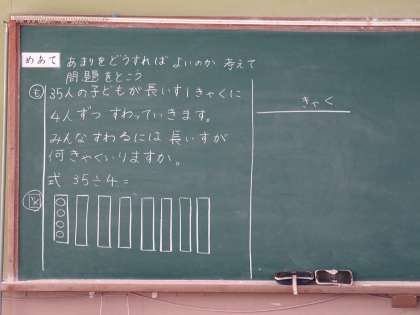 めあて あまりをどうすれば よいのか 考えて
問題をとこう
も 35人の子どもが長いす1きゃくに
4人ずつ すわっていきます。
みんなすわるには 長いすが
何きゃくいりますか。
式 35÷4=
図
きゃく